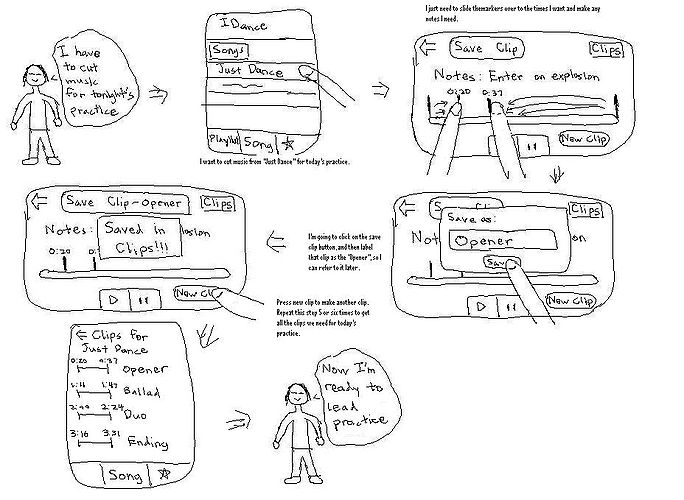 I have
to cut
music
for tonight's
practice
IDance
Songs
Just Dance
Playlist Song
I want to cut music from "Just Dance" for today's practice.
I just need to slide themarkers over to the times I want and make any
notes I need.
Save Clip Clips
Notes: Enter on explosion
0:20 0:37
New Clip
Save Clip Clips
Save as:
Not on
Opener
Save
New Clip
I'm going to click on the save
clip button, and then label
that clip as the "Opener", so I
can refer to it later.
Save Clip-Opener Clips
Notes: losion
Saved in
Clips!!!
0:20
New Cli
Press new clip to make another clip.
Repeat this step 5 or six times to get
all the clips we need for today's
practice.
Clips for
Just Dance
0:20 0:37
Opener
1:47
Ballad
2:24
Duo
3:16 3:31
Ending
Song
Now I'm
ready to
lead
practice